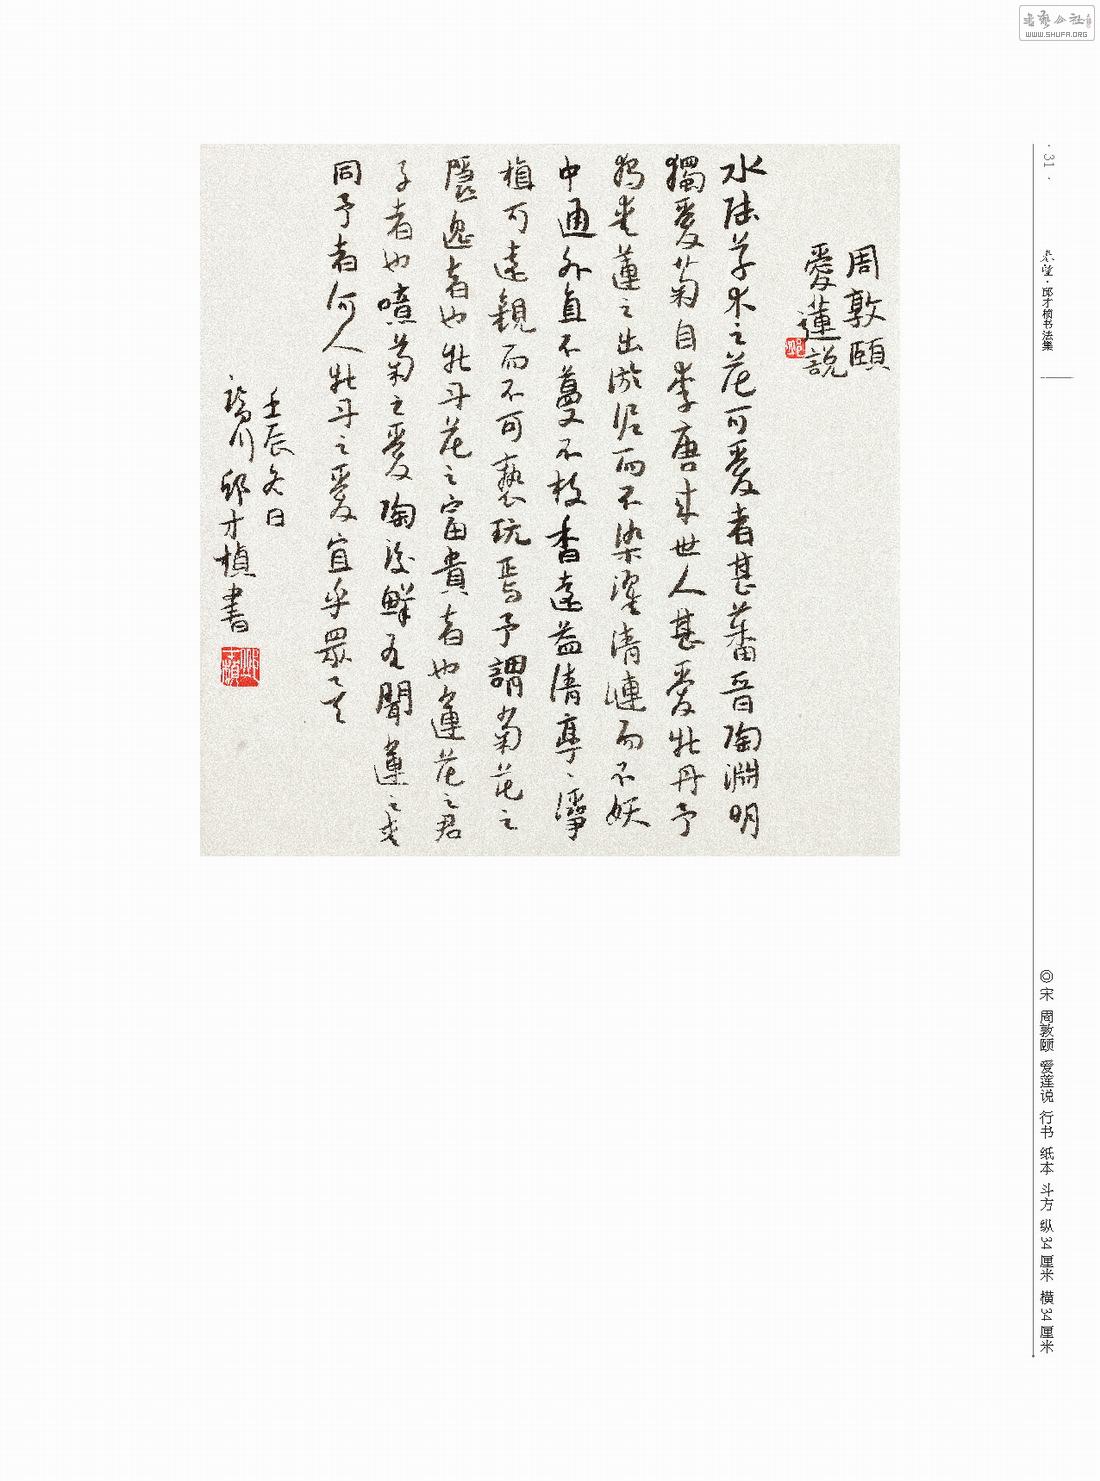 书艺公社
WWW.SHUFA.ORG
· 31 ·
春望·邱才桢书法集
周敦頤
愛蓮說
水陸草木之花可愛者甚蕃晉陶淵明
獨愛菊自李唐來世人甚愛牡丹予
獨愛蓮之出淤泥而不染濯清漣而不妖
中通外直不蔓不枝香遠益清亭丶淨
植可遠觀而不可褻玩焉予謂菊花之
隱逸者也牡丹花之富貴者也蓮花之君
子者也噫菊之愛陶後鮮有聞蓮之愛
同予者何人牡丹之愛宜乎眾丶矣
壬辰冬日
川邱才楨書
◎宋 周敦颐 爱莲说 行书 纸本 斗方 纵34厘米 横34厘米